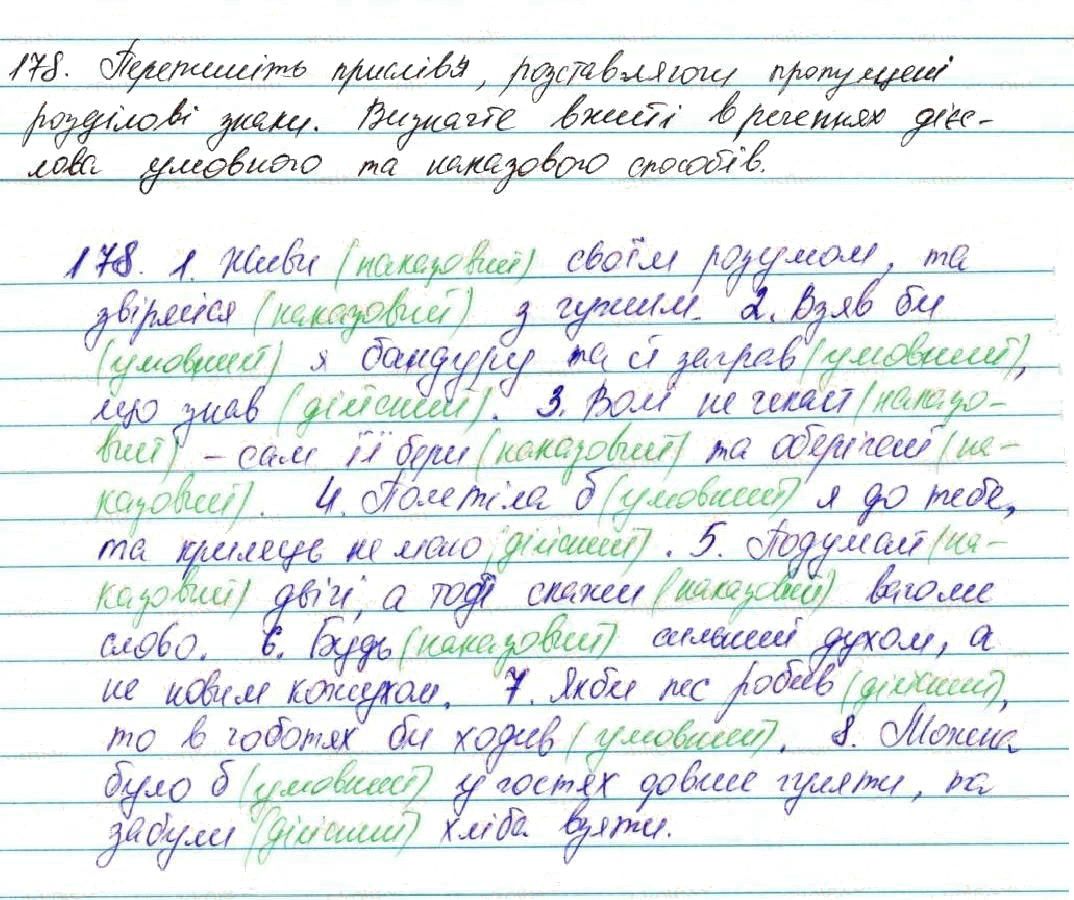 178. Перепишіть прислів'я, розставляючи пропущені
розділові знаки. Визначте вжиті в реченнях дієс-
лова умовного та наказового способів.
178. 1. Живи (наказовий) своїм розумом, та
звіряйся (наказовий) з чужим. 2. Взяв би
(умовний) я бандуру та й заграв (умовний),
що знав (дійсний). 3. Волі не чекай (наказо-
вий) – сам її бери (наказовий) та оберігай (на-
казовий). 4. Полетіла б (умовний) я до тебе,
та крилець не маю (дійсний). 5. Подумай (на-
казовий) двічі, а тоді скажи (наказовий) вагоме
слово. 6. Будь (наказовий) сильний духом, а
не новим кожухом. 7. Якби пес робив (дійсний),
то в чоботях би ходив (умовний). 8. Можна
було б (умовний) у гостях довше гуляти, та
забули (дійсний) хліба взяти.